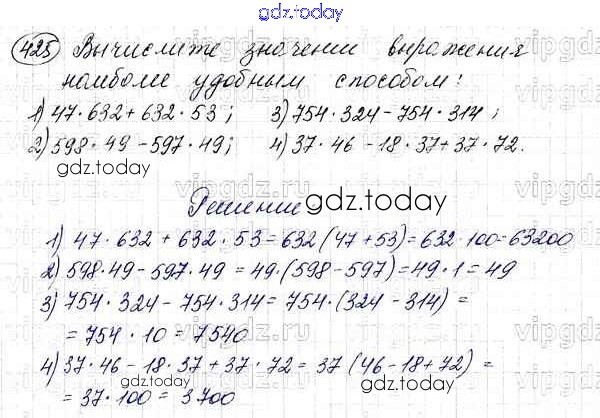 gdz.today
425 Вычислите значении выражения
наиболе удобным способом!
1) 47·632+632·53; 3) 754·324-754·314;
2) 598·49-597·49; 4) 37·46-18·37+37·72.
gdz.today gdz.today
Решение gdz.today
1) 47·632+632·53=632(47+53)=632·100=63200
2) 598·49-597·49=49·(598-597)=49·1=49
3) 754·324-754·314=754·(324-314)=
=754·10=7540
4) 37·46-18·37+37·72=37(46-18+72)=
=37·100=3700
gdz.today gdz.today